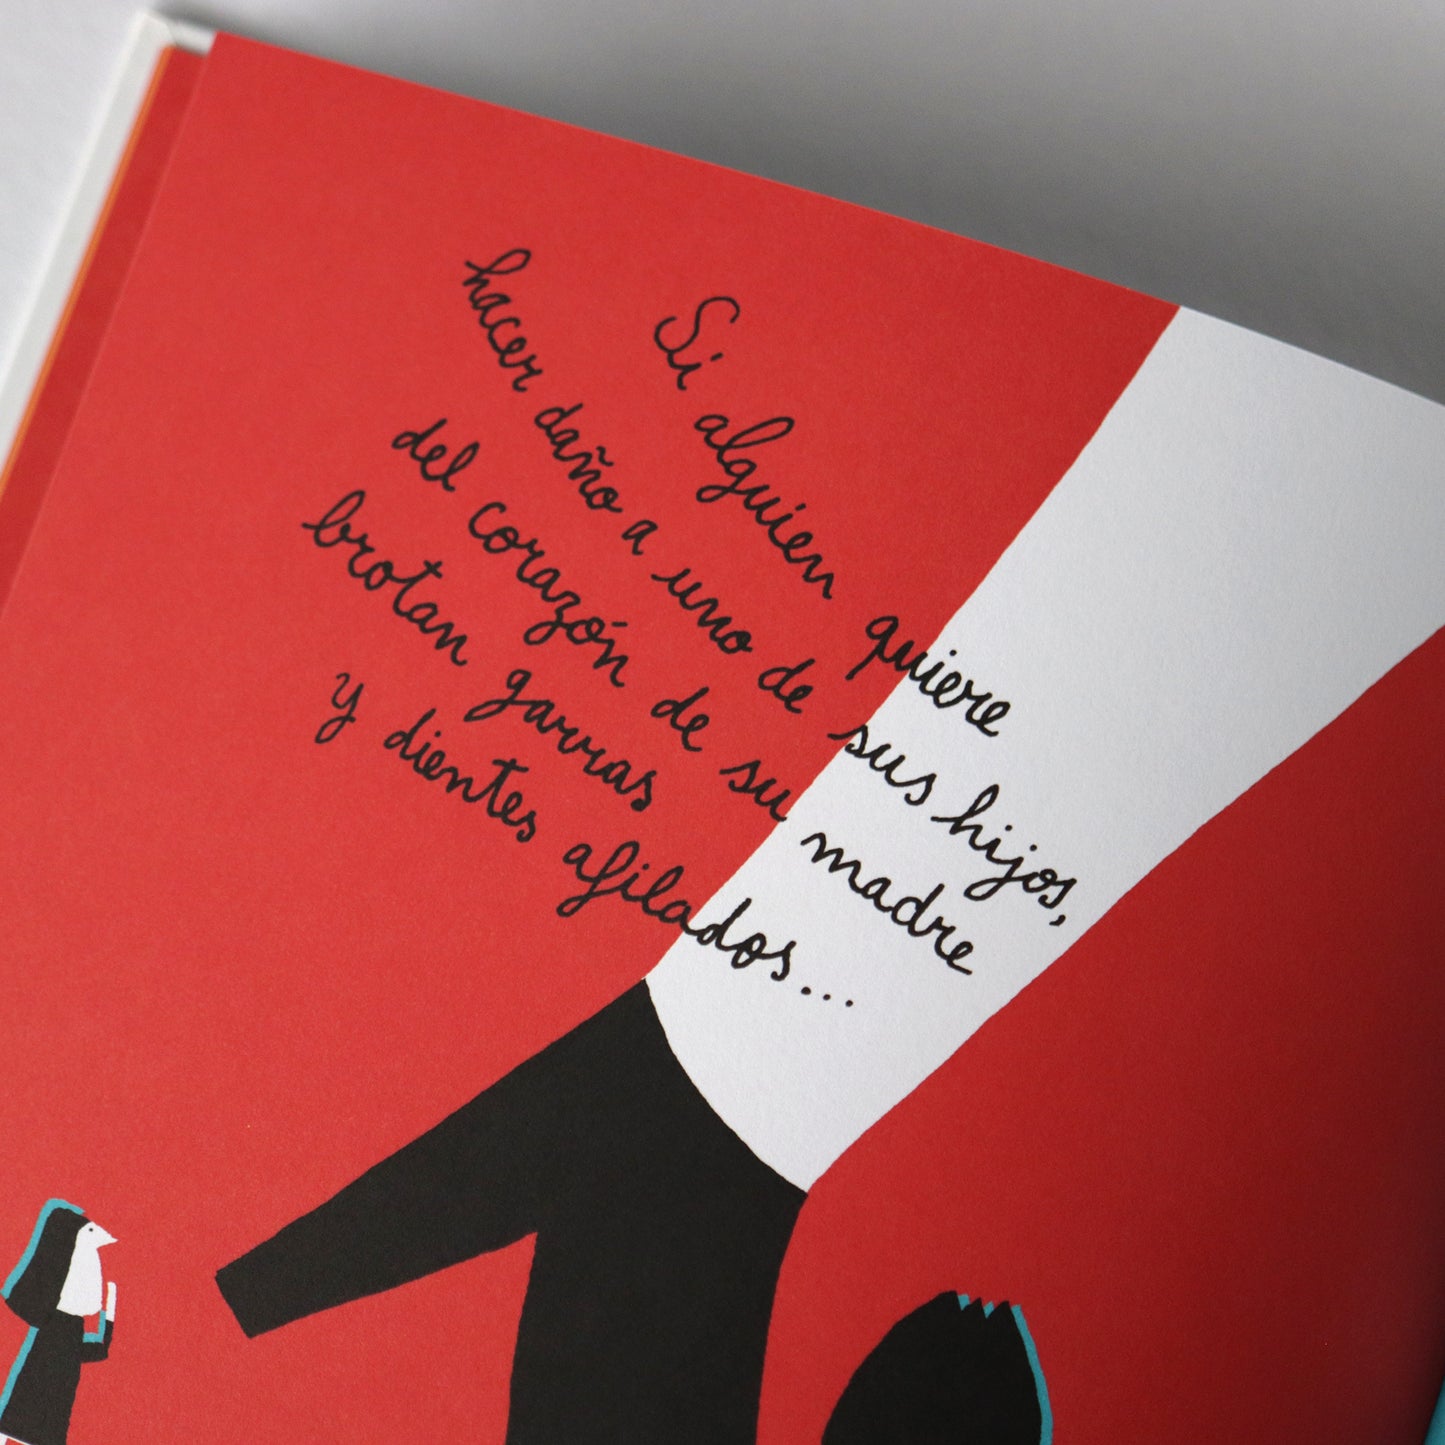 Si alguien quiere
hacer daño a uno de sus hijos,
del corazón de su madre
brotan garras
y dientes afilados...